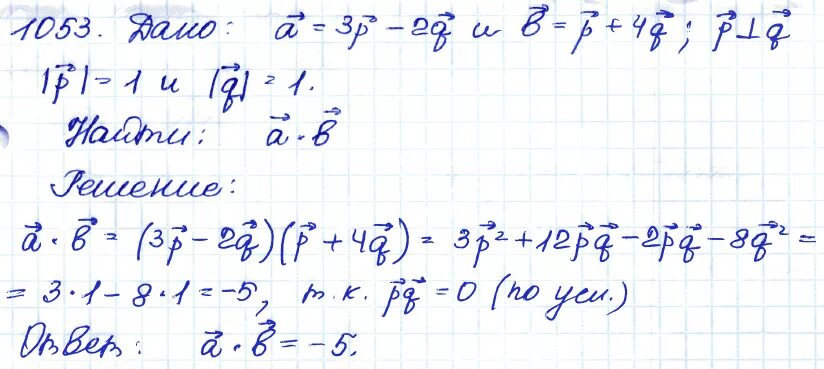 1053. Дано: a⃗ = 3p⃗ − 2q⃗ и b⃗ = p⃗ + 4q⃗; p⃗ ⊥ q⃗
|p⃗| = 1 и |q⃗| = 1.
Найти: a⃗ · b⃗
Решение:
a⃗ · b⃗ = (3p⃗ − 2q⃗)(p⃗ + 4q⃗) = 3p⃗² + 12p⃗q⃗ − 2p⃗q⃗ − 8q⃗² =
= 3·1 − 8·1 = −5, т.к. p⃗q⃗ = 0 (по усл.)
Ответ: a⃗ · b⃗ = −5.